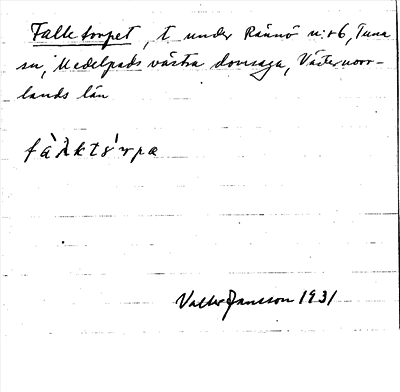 Falktorpet, t. under Rännö n:r 6, Tuna
sn, Medelpads västra domsaga, Västernorr-
lands län
Valter Jansson 1931